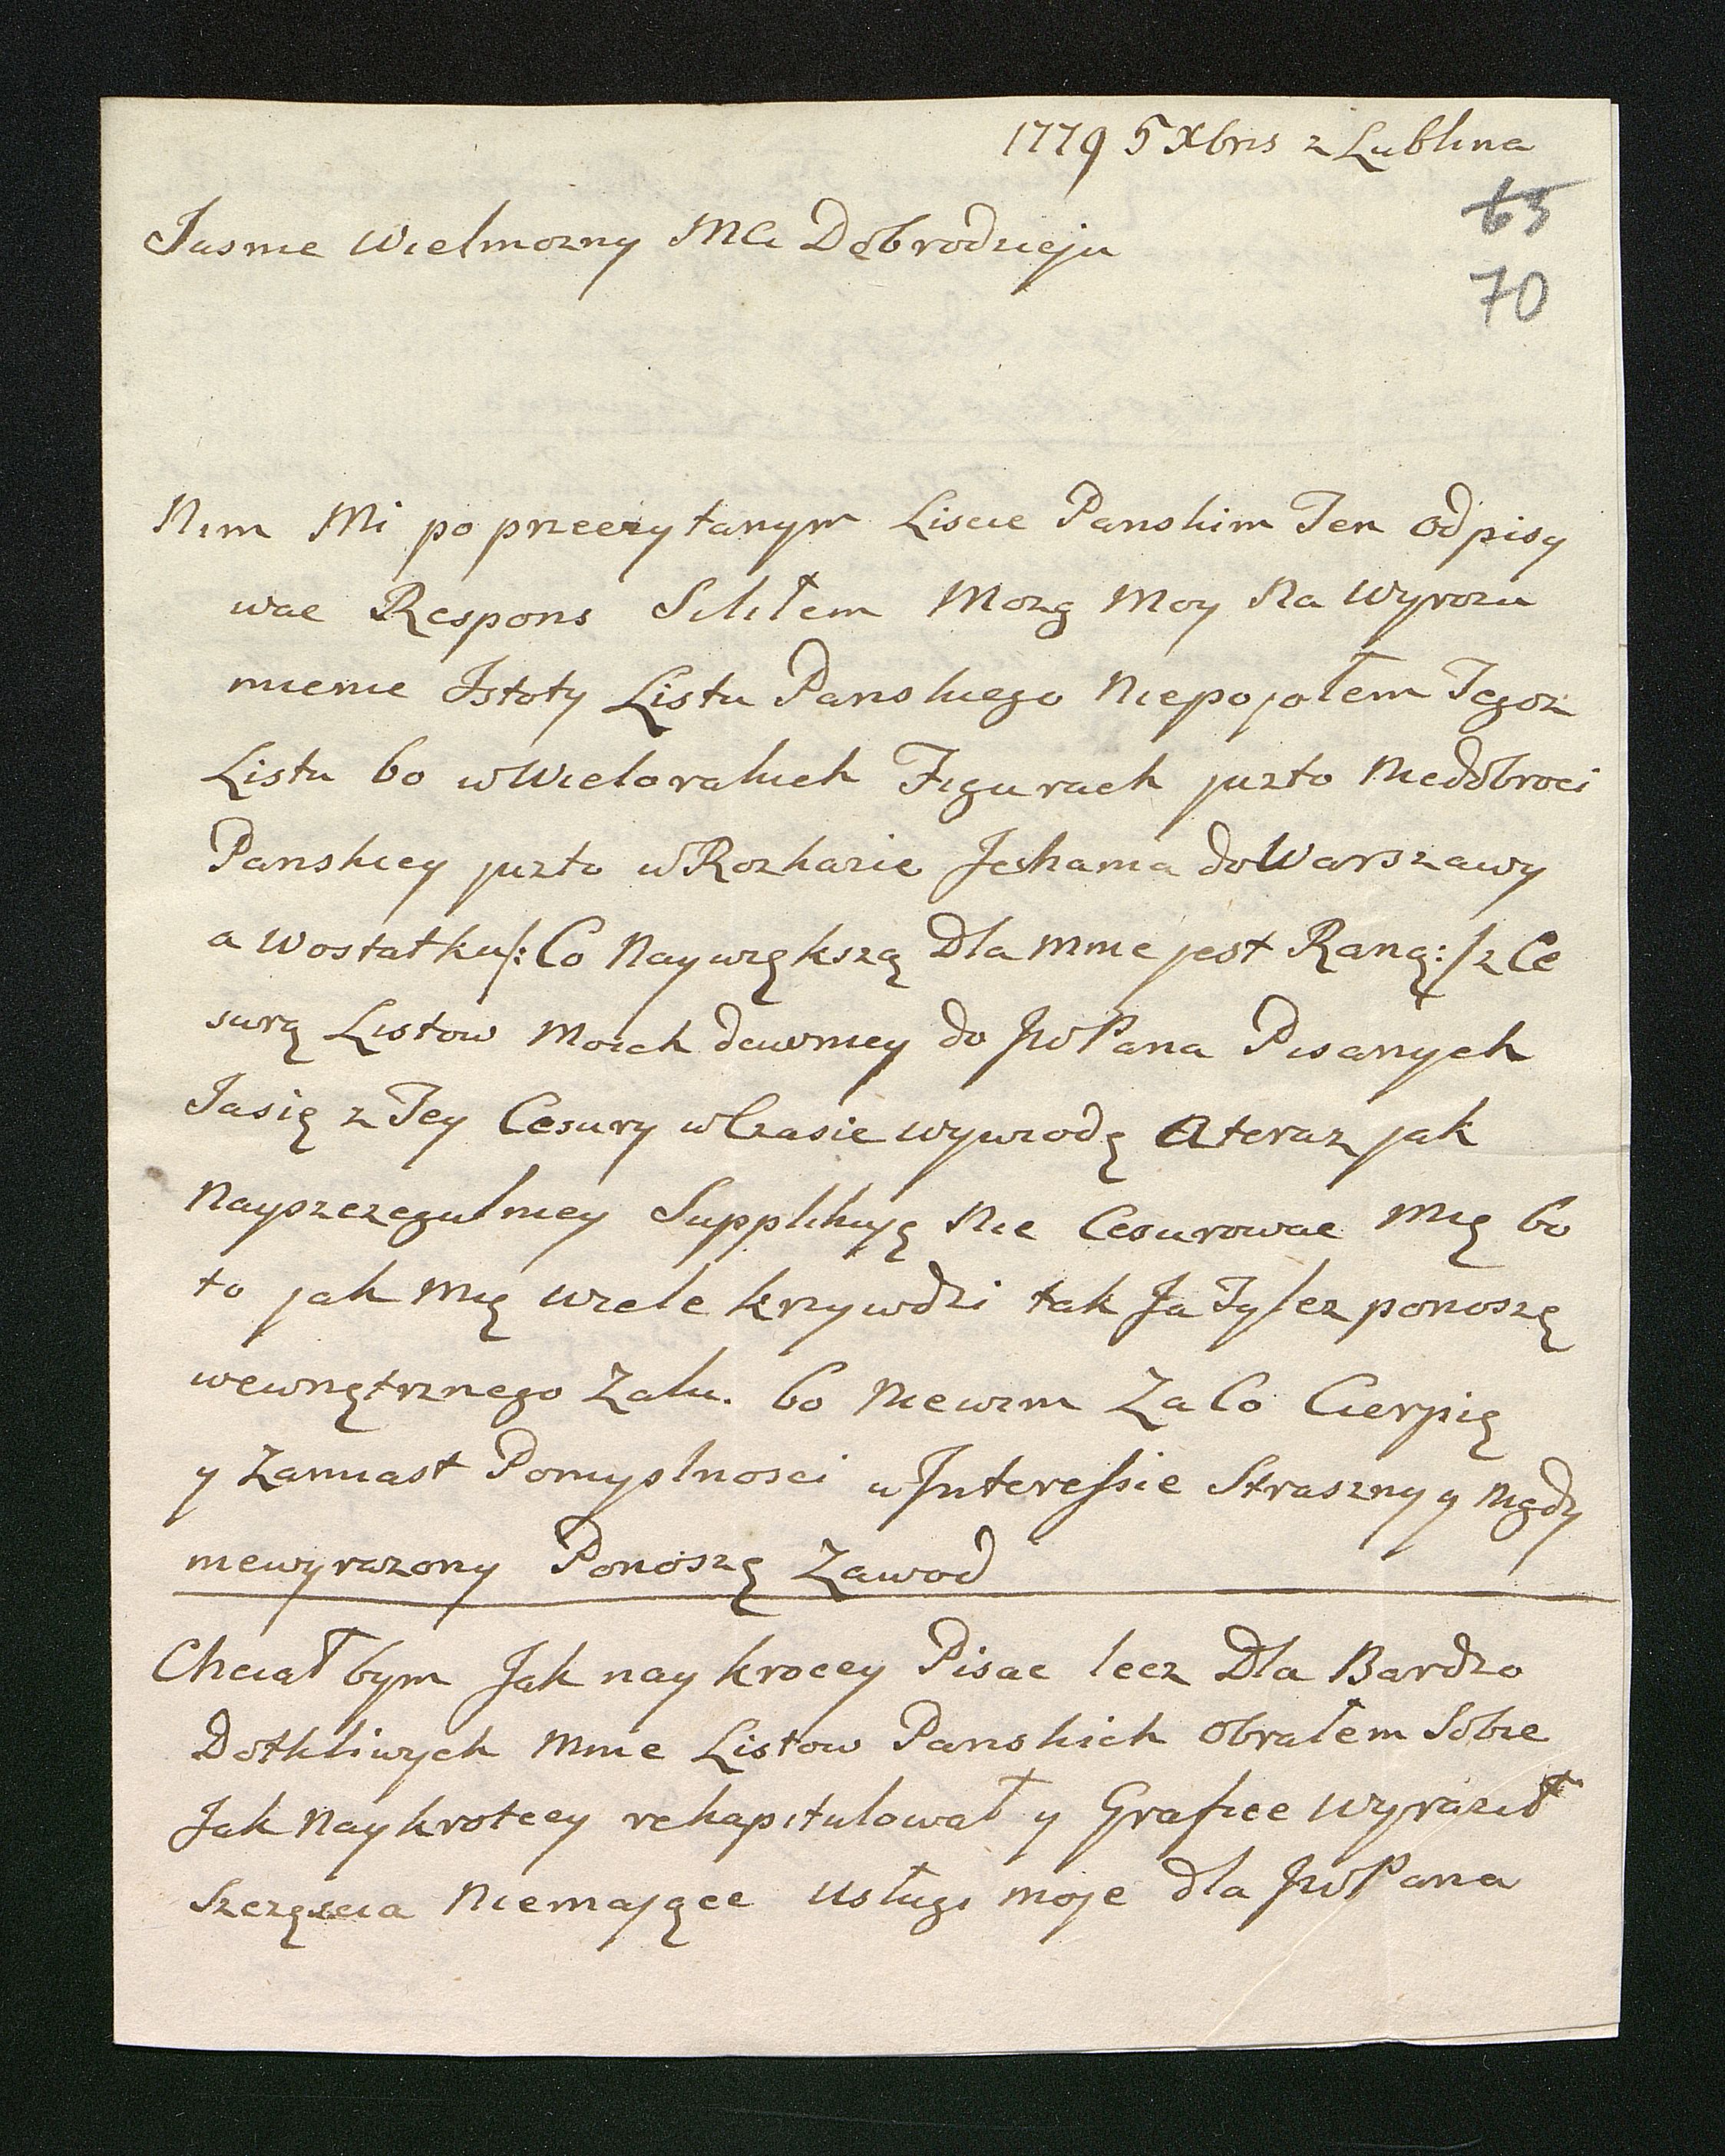 1779 5 Xbris z Lublina
63
70
Jasnie Wielmozny Mći Dobrodzieju
Nim Mi po przeczytanym Liscie Panskim Ten odpisy
wac Respons Sililem Mozg Moy Na Wyrozu
mienie Istoty Listu Panskiego Niepojołem Tegoz
Listu bo w Wielorakich Figurach juzto Niedobroci
Panskiey juzto w Rozkazie Jechania do Warszawy
a Wostatku /: Co Naywiększą Dla mnie jest Raną :/ z Ce
surą Listow Moich dawniey do JWPana Pisanych
Jasię z Tey Cesury w Czasie wywiodę A teraz jak
Nayszczegulniey Supplikuję Nie Cesurowac Mię bo
to jak Mię Wiele krzywdzi tak Ja Tylez ponoszę
wewnętrznego Zalu. bo Niewim Za Co Cierpię
y Zamiast Pomyslnosci w Interessie Straszny y Nigdy
niewyrazony Ponoszę Zawod
Chciał bym Jak nay krocey Pisac lecz Dla Bardzo
Dotkliwych Mnie Listow Panskich Obrałem Sobie
Jak Naykrotcey rekapitulował y Grafice wyraził
Szczęscia Niemające usługi moje dla JWPana